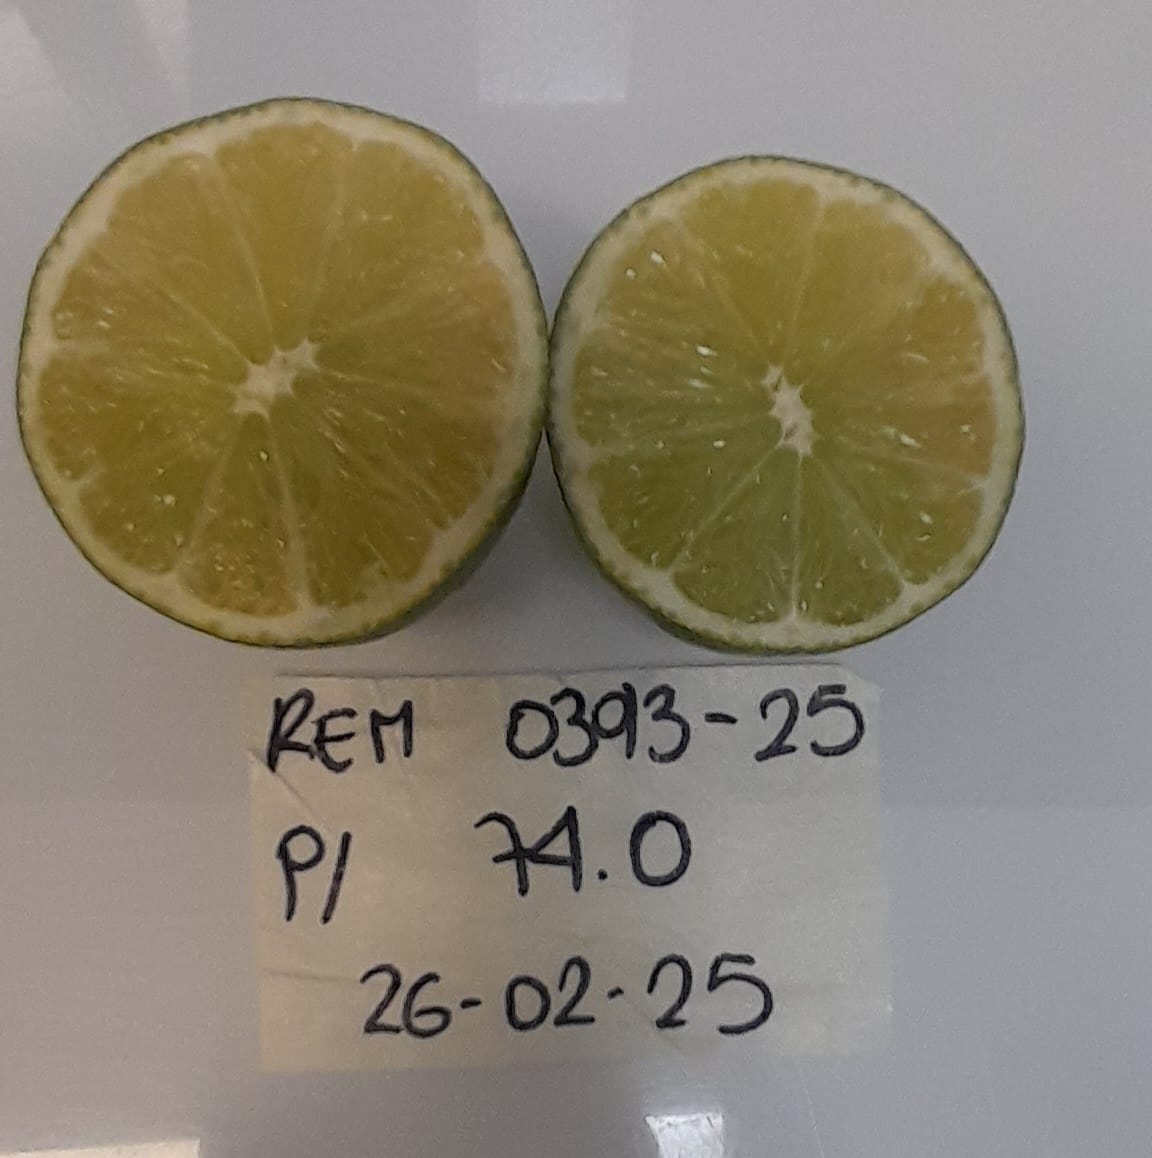 REM 0393-25
P/ 74.0
26-02-25